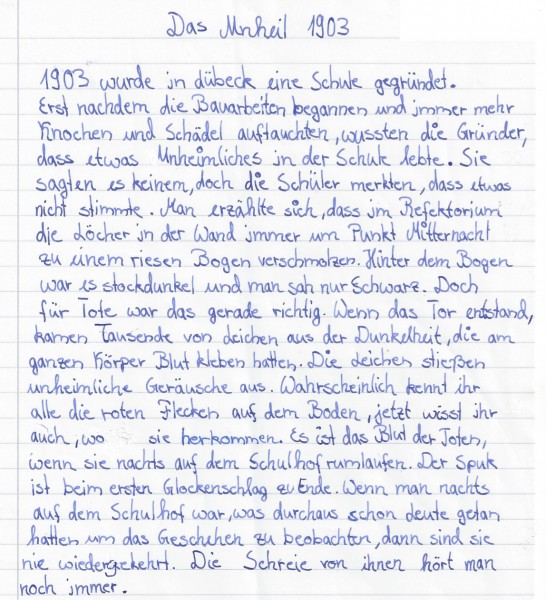 Das Unheil 1903
1903 wurde in Lübeck eine Schule gegründet.
Erst nachdem die Bauarbeiten begannen und immer mehr
Knochen und Schädel auftauchten, wussten die Gründer,
dass etwas Unheimliches in der Schule lebte. Sie
sagten es keinem, doch die Schüler merkten, dass etwas
nicht stimmte. Man erzählte sich, dass im Refektorium
die Löcher in der Wand immer um Punkt Mitternacht
zu einem riesen Bogen verschmolzen. Hinter dem Bogen
war es stockdunkel und man sah nur Schwarz. Doch
für Tote war das gerade richtig. Wenn das Tor entstand,
kamen Tausende von Leichen aus der Dunkelheit, die am
ganzen Körper Blut kleben hatten. Die Leichen stießen
unheimliche Geräusche aus. Wahrscheinlich kennt ihr
alle die roten Flecken auf dem Boden, jetzt wisst ihr
auch, wo sie herkommen. Es ist das Blut der Toten,
wenn sie nachts auf dem Schulhof rumlaufen. Der Spuk
ist beim ersten Glockenschlag zu Ende. Wenn man nachts
auf dem Schulhof war, was durchaus schon Leute getan
hatten um das Geschehen zu beobachten, dann sind sie
nie wiedergekehrt. Die Schreie von ihnen hört man
noch immer.